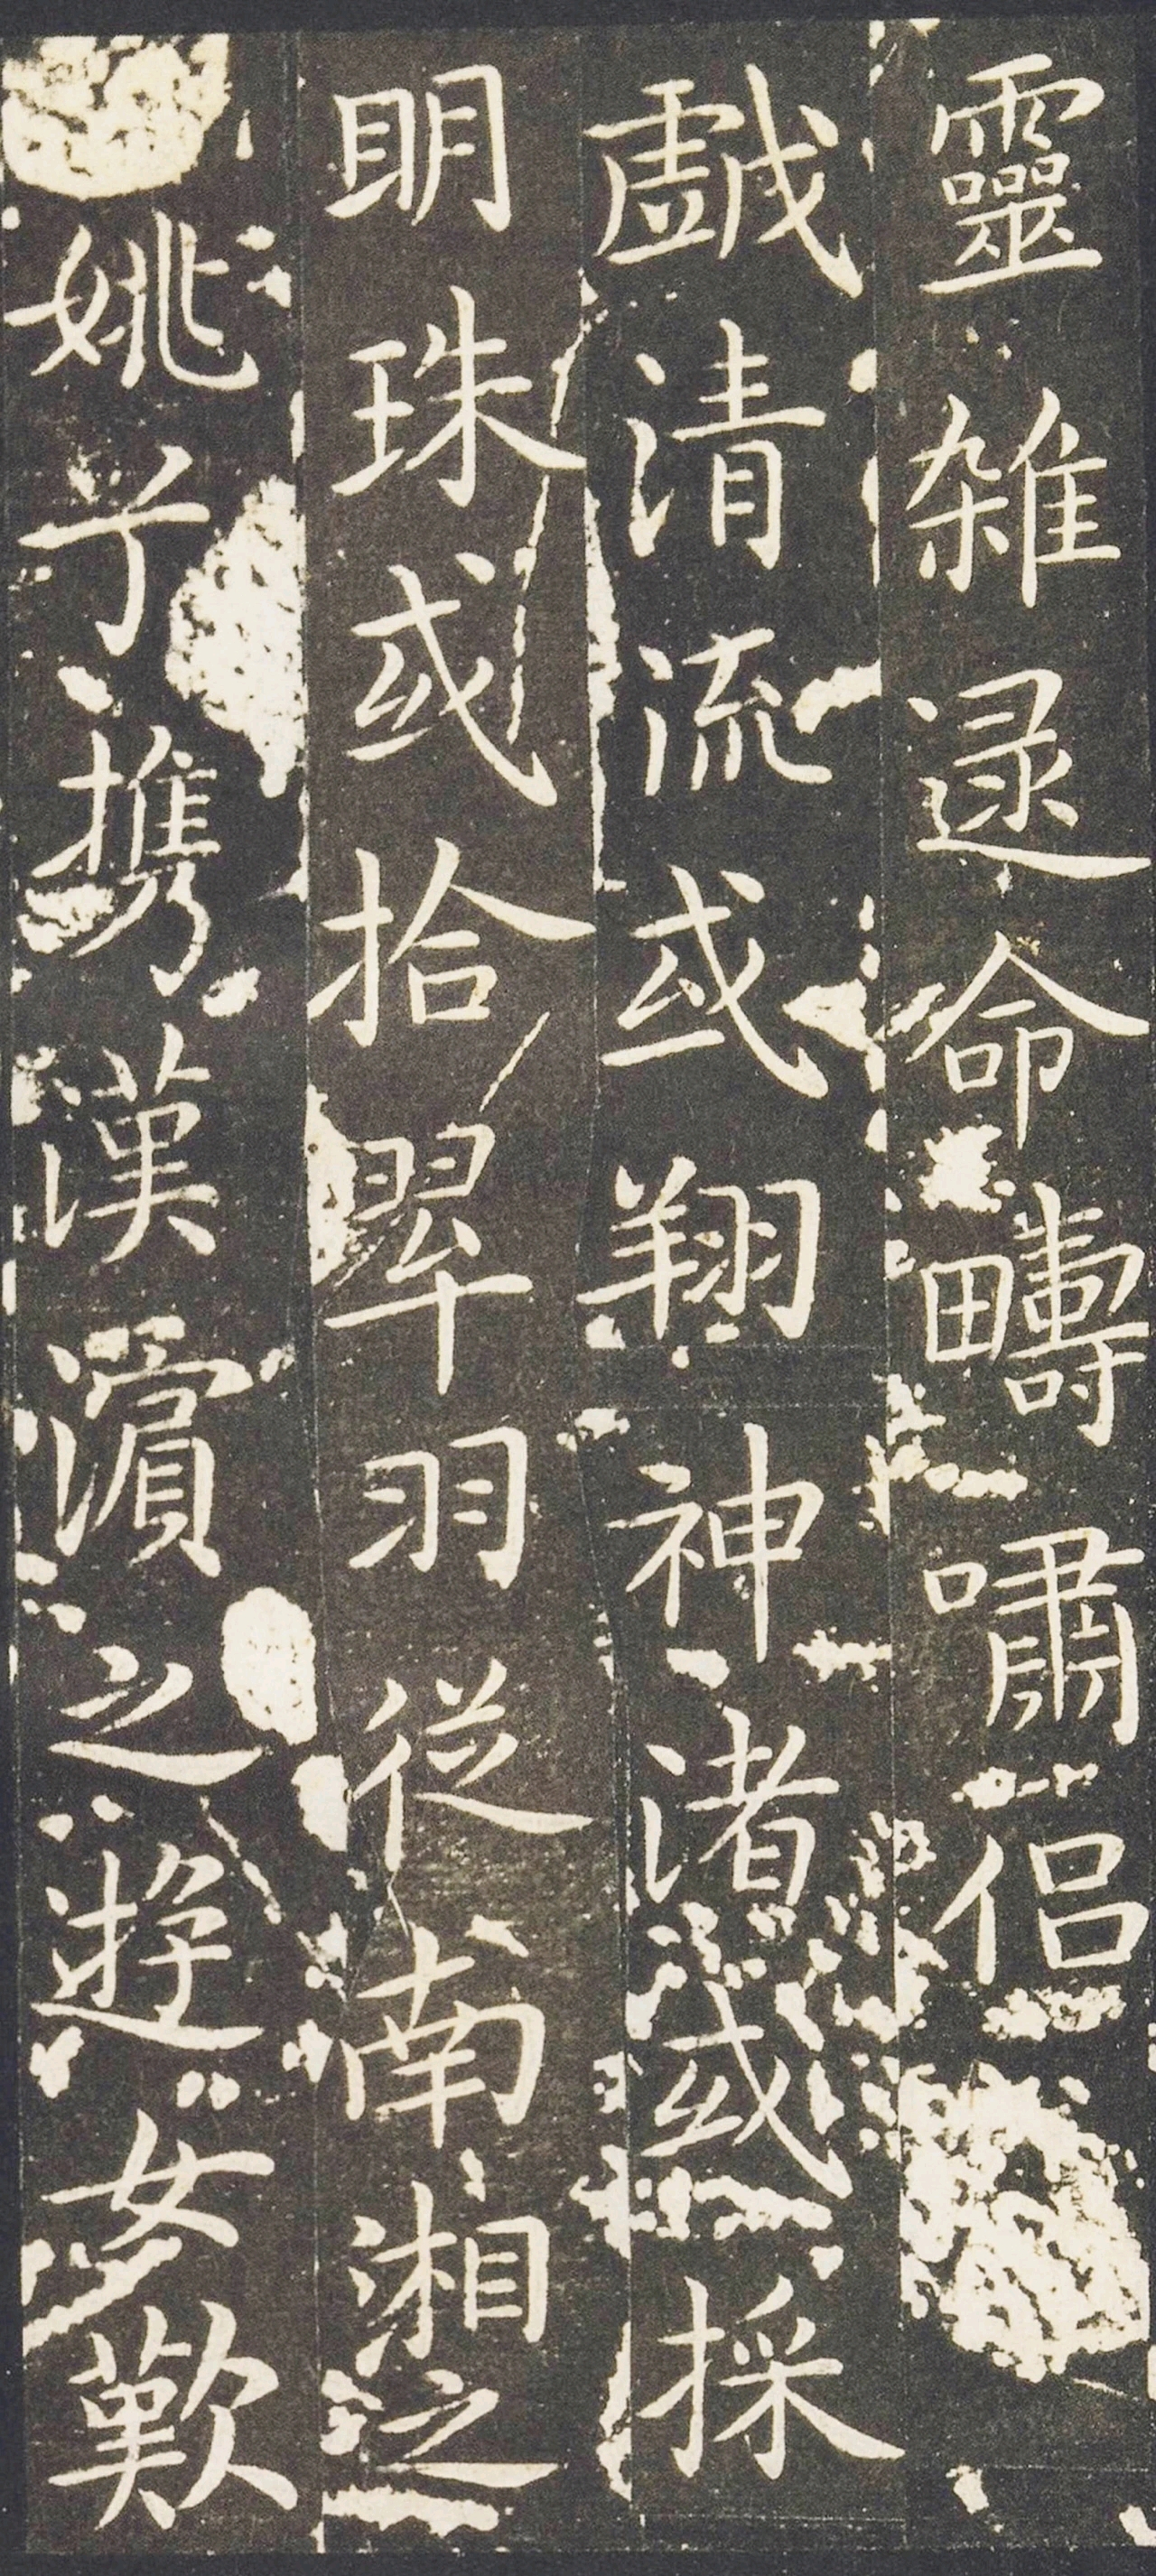 靈雑逯命疇嘯侶
戯清流或翔神渚或採
明珠或拾翠羽從南湘之
姚兮携漢濱之遊女歎